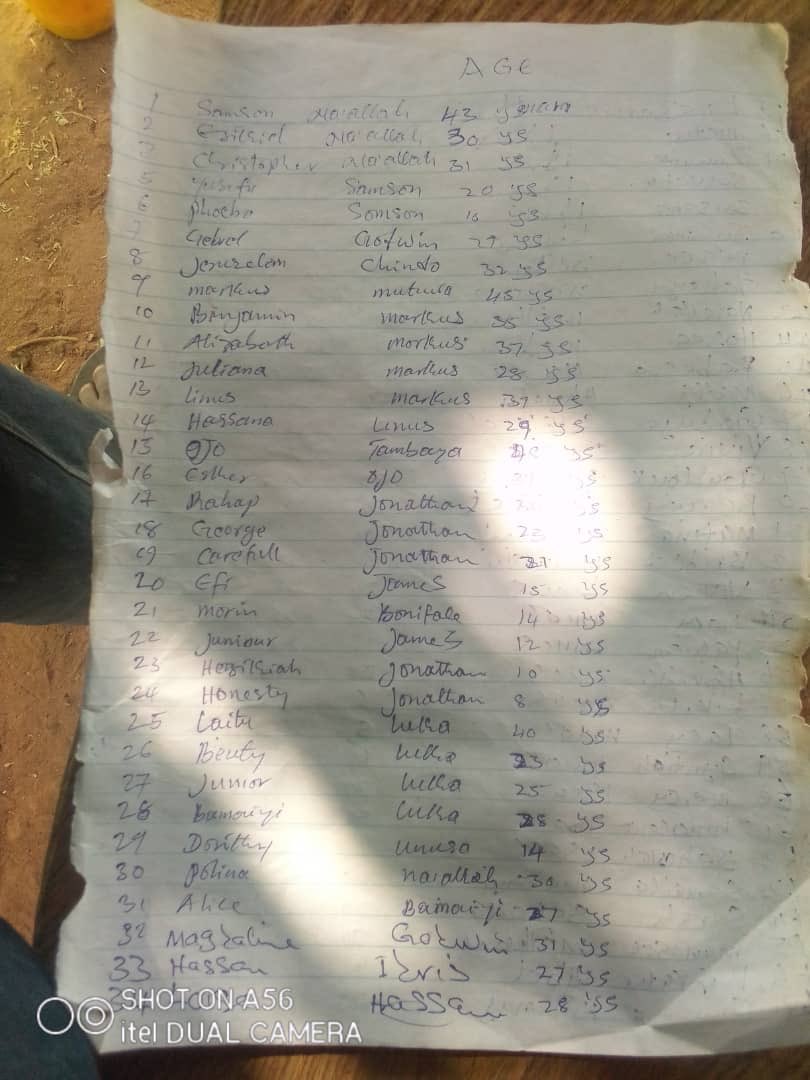 AGE
1 Samson Na'allah 43 years
2 Ezikiel Na'allah 30 ys
3 Christopher Na'allah 31 ys
5 Yusufu Samson 20 ys
6 Phoebe Samson 10 ys
7 Gebrel Gofwin 29 ys
8 Jeruzelem Chindo 32 ys
9 markus mutuwa 45 ys
10 Binjamin markus 35 ys
11 Alizabath markus 37 ys
12 Juliana markus 28 ys
13 Linus markus 37 ys
14 Hassana Linus 29 ys
15 OJO Tambaya ys
16 Esther OJO ys
17 Rahap Jonathan ys
18 George Jonathan 23 ys
19 Carefull Jonathan 21 ys
20 Efi James 15 ys
21 morin Bonifale 14 ys
22 Juniour James 12 ys
23 Hezikiah Jonathan 10 ys
24 Honesty Jonathan 8 ys
25 Laitu Luka 40 ys
26 Beuty Luka 23 ys
27 Junior Luka 25 ys
28 Bamaiyi Luka 28 ys
29 Dorithy unusa 14 ys
30 Polina Na'allah 30 ys
31 Alice Bamaiyi 27 ys
32 Magdaline Godwin 31 ys
33 Hassan Idris 27 ys
Hassan 28 ys
SHOT ON A56
itel DUAL CAMERA